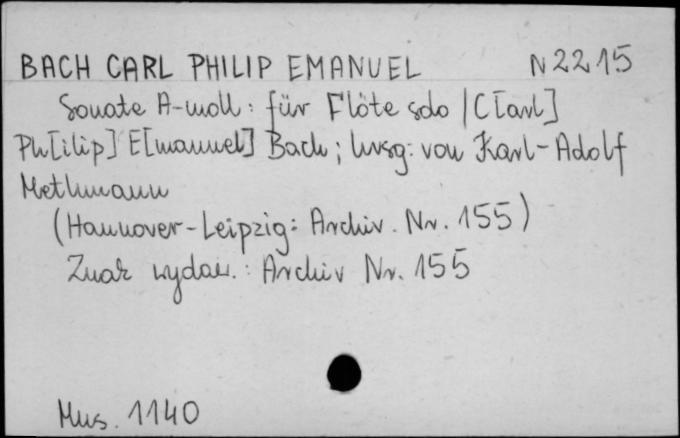 BACH CARL PHILIP EMANUEL N 2215
Sonate A-moll : für Flöte solo / C[arl]
Ph[ilip] E[manuel] Bach ; hrsg. von Karl-Adolf
Methmann
(Hannover-Leipzig : Archiv. Nr. 155)
Znak wydaw. : Archiv Nr. 155
Mus. 1140